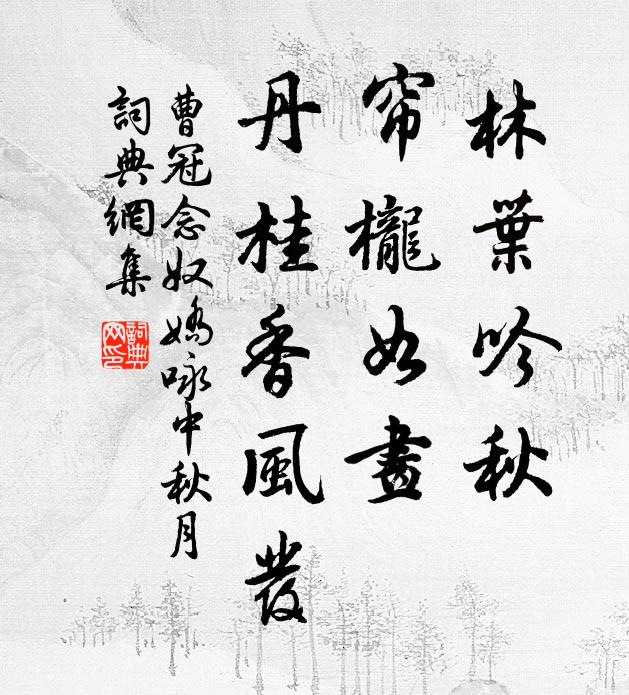 林葉吟秋
帘櫳如畫
丹桂香風發
曹冠念奴嬌咏中秋月
詞典網集
詞典
网印